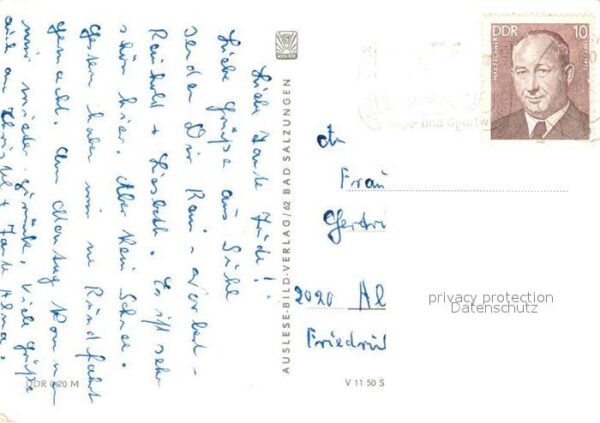 Liebe Tante Trude!
Liebe Grüße aus Suhl
senden Dir Rani - Norbert -
Reinhold + Liesbeth. Es ist sehr
schön hier. Aber kein Schnee.
Gestern haben wir ne Rundfahrt
gemacht. Am Montag kommen
wir wieder zurück. Viele Grüße
auch an Christel + Tante Alma.
DDR 0,20 M
AUSLESE-BILD-VERLAG/62 BAD SALZUNGEN
V 11 50 S
DDR 10
An
Frau
Gertru
2020 Al
Friedric
privacy protection
Datenschutz